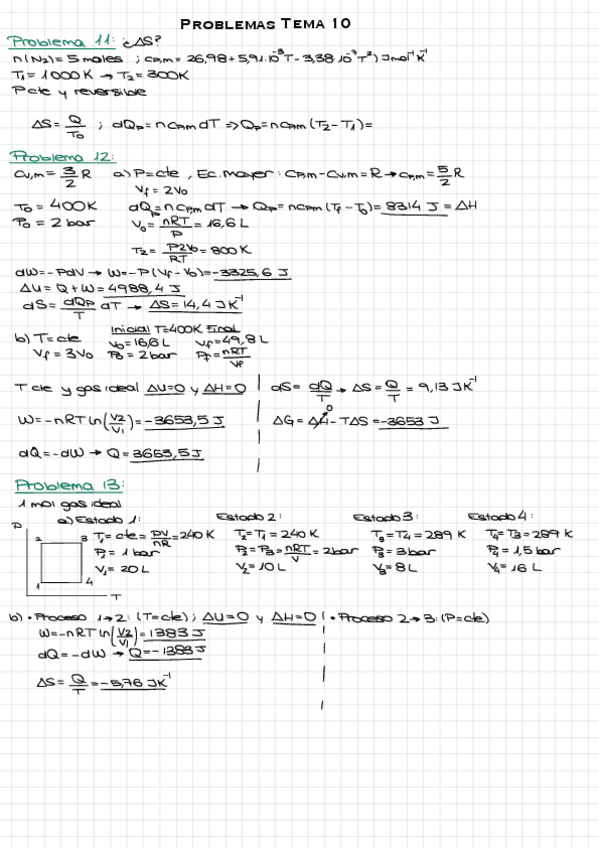 PROBLEMAS TEMA 10
Problema 11: ¿ΔS?
n(N2)=5moles ; cp,m= 26,98+5,91·10⁻³T-3,38·10⁻⁷T²) Jmol⁻¹K⁻¹
T1=1000K → T2=300K
P cte y reversible
ΔS=Q/T0 ; dQp=n cp,m dT ⇒ Qp=n cp,m (T2-T1)=
Problema 12:
Cv,m=3/2 R a) P=cte , Ec. mayer: cp,m-cv,m=R→cp,m=5/2 R
Vf=2V0
T0=400K dQp=n cp,m dT → Qp=n cp,m (Tf-T0)=8314 J=ΔH
P0=2bar V0=nRT/P=16,6L
T2=P2V0/RT=800K
dW=-PdV → W=-P(Vf-V0)=-3325,6 J
ΔU=Q+W=4988,4 J
dS=dQp/T dT → ΔS=14,4 JK⁻¹
b) T=cte Inicial T=400K Final
Vf=3V0 V0=16,6L Vf=49,8L
P0=2bar Pf=nRT/Vf
T cte y gas ideal ΔU=0 y ΔH=0
W=-nRTln(V2/V1)=-3653,5J
dQ=-dW → Q=3653,5J
dS=dQ/T → ΔS=Q/T=9,13 JK⁻¹
0
ΔG=ΔH-TΔS=-3653 J
Problema 13:
1mol gas ideal
a) Estado 1:
T1=cte=PV/nR=240K
P1=1bar
V1=20L
Estado 2:
T2=T1=240K
P2=P3=nRT/V=2bar
V2=10L
Estado 3:
T3=T4=289K
P3=3bar
V3=8L
Estado 4:
T4=T3=289K
P4=1,5bar
V4=16L
P
2 3
1 4
T
b) • Proceso 1→2: (T=cte) ; ΔU=0 y ΔH=0
W=-nRTln(V2/V1)=1383J
dQ=-dW → Q=-1383J
ΔS=Q/T=-5,76JK⁻¹
• Proceso 2→3: (P=cte)